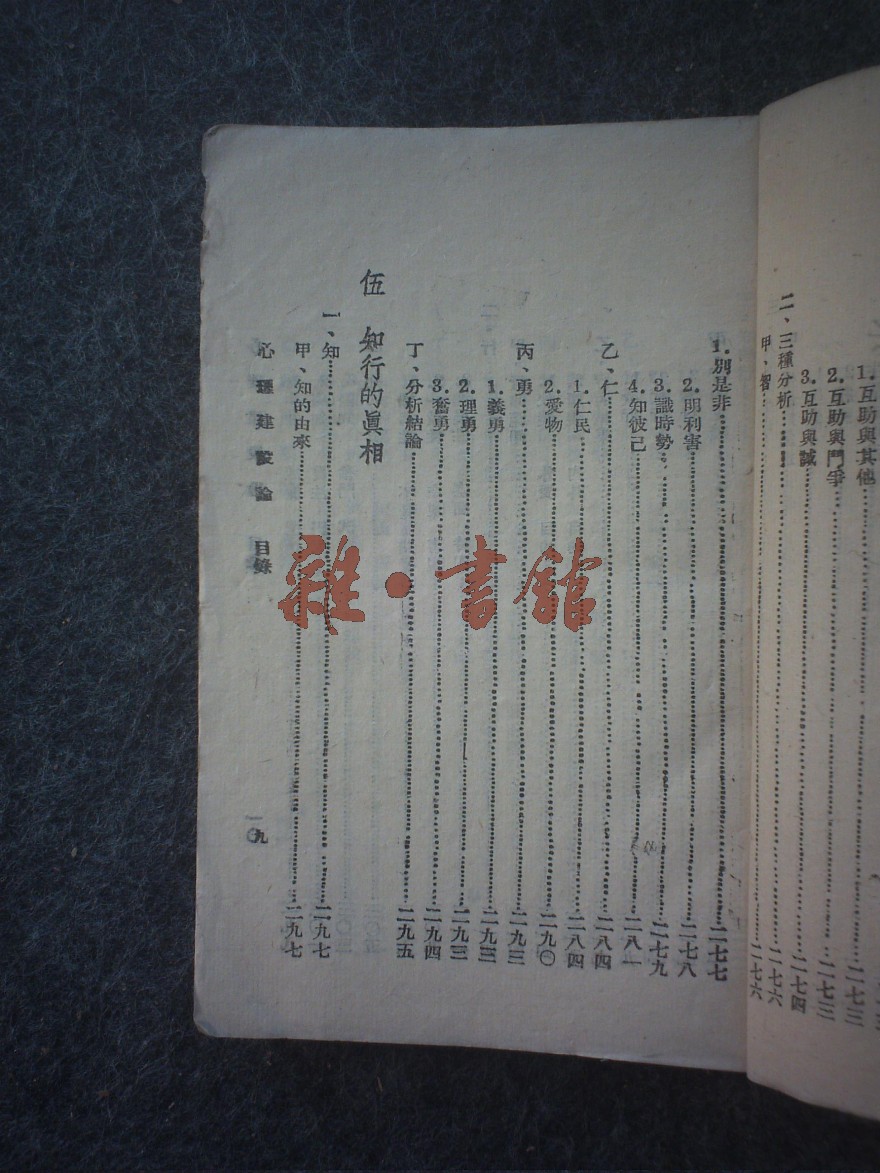 1.互助與其他……二七三
2.互助與鬥爭……二七三
3.互助與誠……二七四
二、三種分析……二七六
甲、智……二七六
1.別是非……二七七
2.明利害……二七八
3.識時勢……二七九
4.知彼己……二八一
乙、仁……二八四
1.仁民……二八四
2.愛物……二九〇
丙、勇……二九三
1.義勇……二九三
2.理勇……二九三
3.奮勇……二九四
丁、分析結論……二九五
伍 知行的眞相
一、知……二九七
甲、知的由來……二九七
心理建設論 目錄
一九
雜·書館